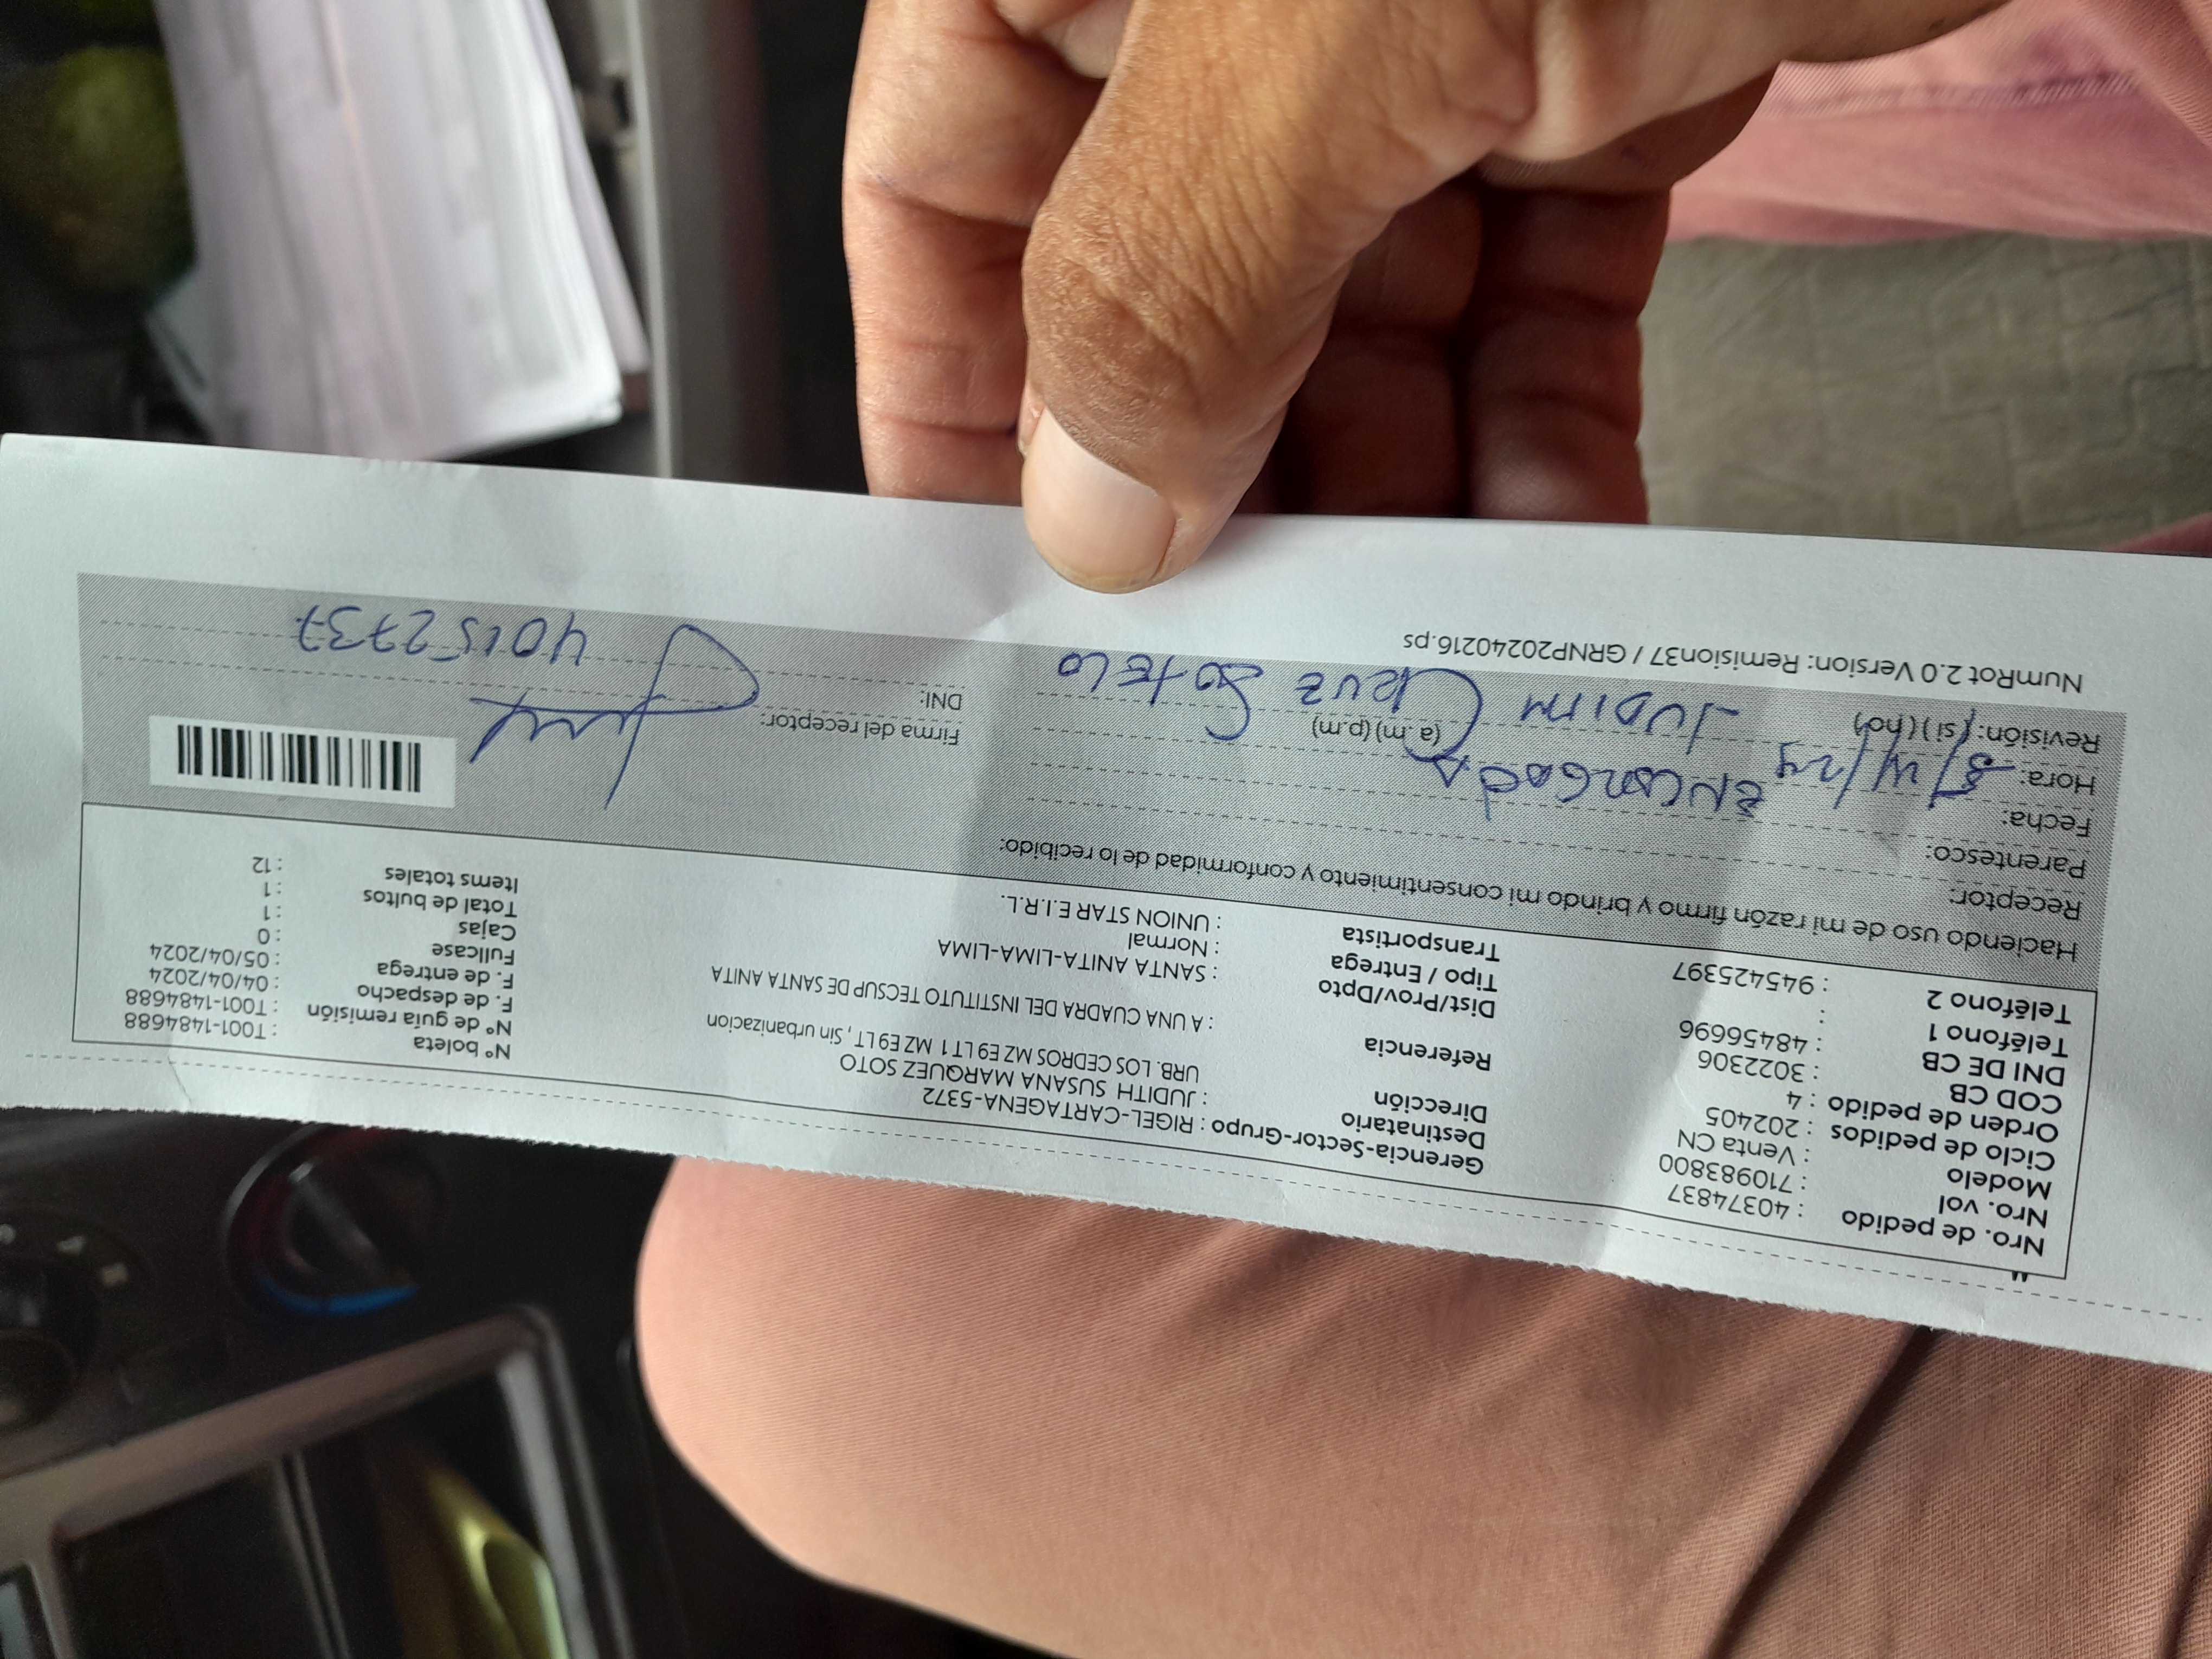 Nro. de pedido : 40374837
Nro. vol : 710983800
Modelo : Venta CN
Ciclo de pedidos : 202405
Orden de pedido : 4
COD CB : 3022306
DNI DE CB : 48456696
Teléfono 1 :
Teléfono 2 : 945425397
Gerencia-Sector-Grupo : RIGEL-CARTAGENA-5372
Destinatario : JUDITH SUSANA MARQUEZ SOTO
Dirección URB. LOS CEDROS MZ E9 LT 1 MZ E9 LT , Sin urbanizacion
Referencia : A UNA CUADRA DEL INSTITUTO TECSUP DE SANTA ANITA
Dist/Prov/Dpto : SANTA ANITA-LIMA-LIMA
Tipo / Entrega : Normal
Transportista : UNION STAR E.I.R.L.
Nº boleta : T001-1484688
Nº de guia remisión : T001-1484688
F. de despacho : 04/04/2024
F. de entrega : 05/04/2024
Fullcase : 0
Cajas : 1
Total de bultos : 1
Items totales : 12
Haciendo uso de mi razón firmo y brindo mi consentimiento y conformidad de lo recibido:
Receptor:
Parentesco: ENCARGADA
Fecha: 5/4/24
Hora: (a.m) (p.m)
JUDITH CRUZ SOTELO
Revisión: (si) (no)
Firma del receptor:
DNI: 40152737
NumRot 2.0 Version: Remision37 / GRNP20240216.ps